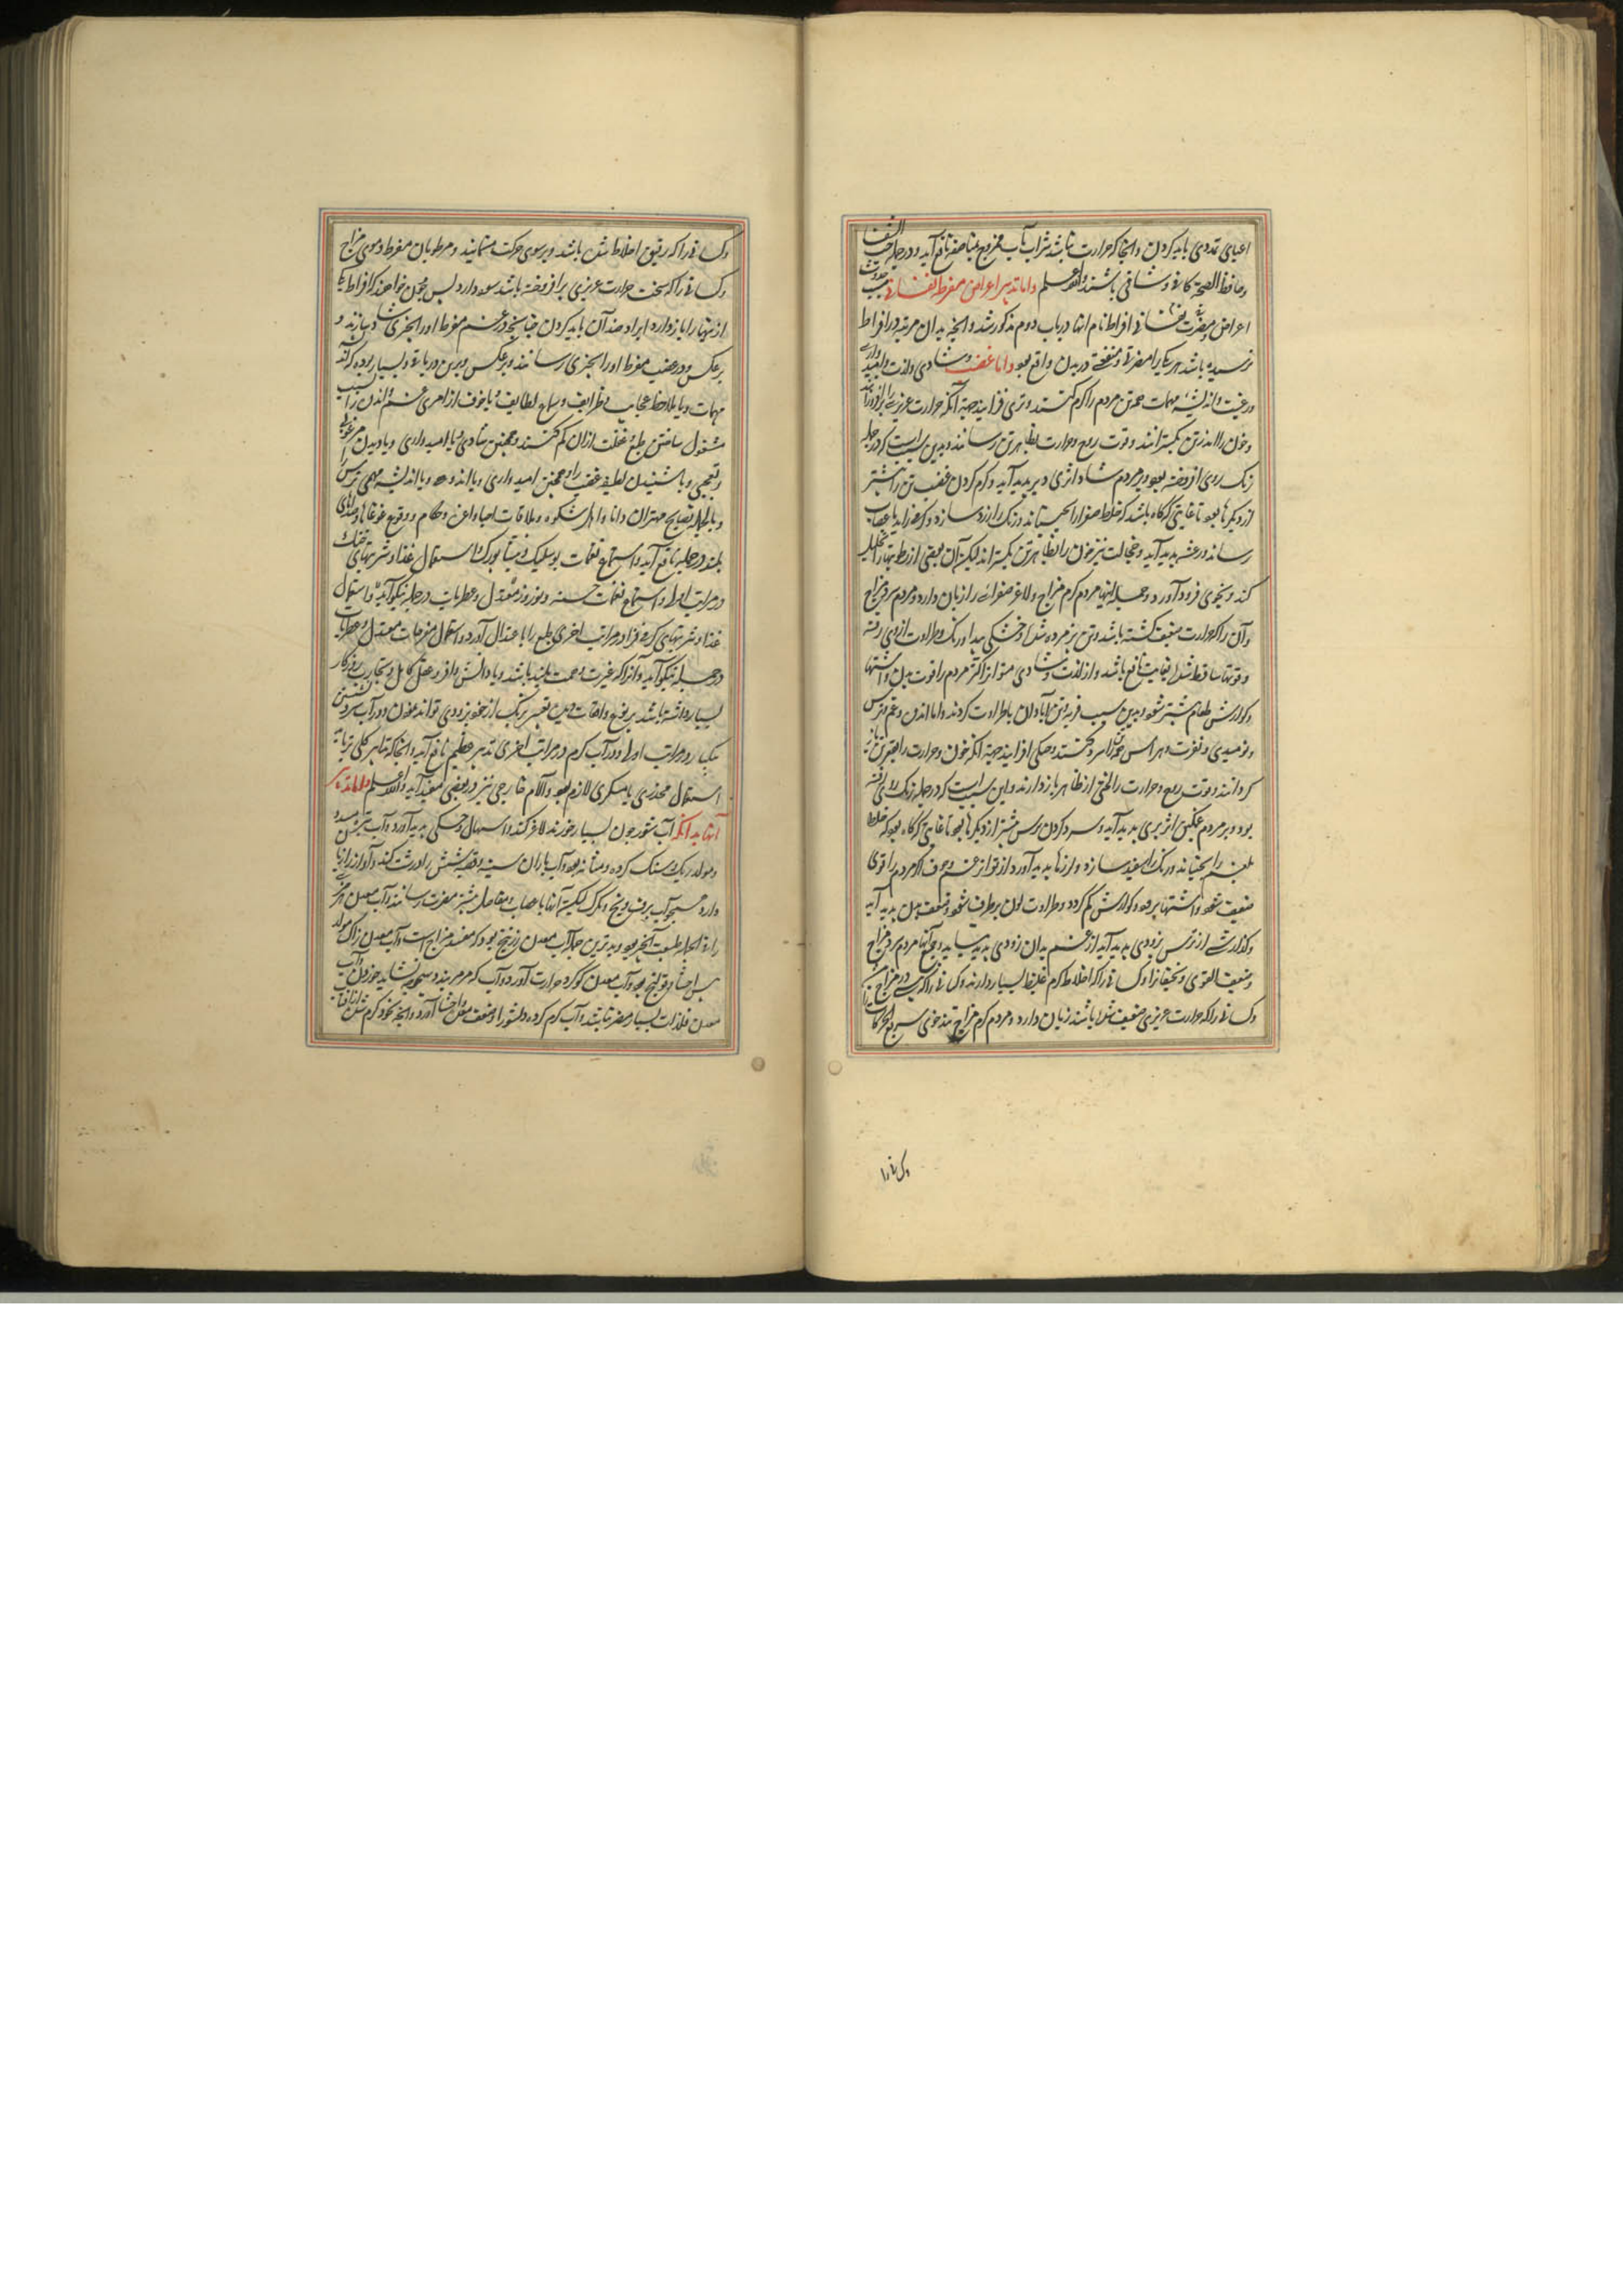 اعیای تمددی باید کردن و آنجا که حرارت نباشد شراب با آب ممزوج نافع آید و در جمله حب الشفا
و حافظ الصحة کافی و شافی باشند والله اعلم و اما تدبیر اعراض مفرطه نفسانی سبب حدوث
اعراض و مضرت نفسانی افراط نام انها در باب دوم مذکور شد و آنچه بدان مرتبه در افراط
نرسیده باشد هر یکی را مضرتی و منفعتی در بدن واقع بود و اما غضب و شادی و لذت و امیدواری
و رغبت و اندیشه مهمات همه تن مردم را گرم کنند و تری فزایند جهة آنکه حرارت عزیزی را برافروزانند
و خون را اندر تن بگسترانند و قوت روح و حرارت بظاهر تن رسانند و بدین سبب است که در جمله
رنک روی افروخته بود و بر مردم شاد اثری دیر پدید آید و گرم کردن غضب تن را بیشتر
از دیگرها بود تا غایتی که گاه باشد که خلط صفرا را بجنباند و رنک را زرد سازد و گرما را به اعصاب
رساند و رعشه پدید آید و خجالت نیز خون را بظاهر تن بگستراند لیکن آن بعضی از رطوبتها را تحلیل
کند و بخوی فرود آورد و جمله اینها مردم گرم مزاج و لاغر صفرائی را زیان دارد و مردم سرد مزاج
و آن را که حرارت ضعیف گشته باشد و تن پژمرده شده و خشکی پیدا و رنک و طراوت از وی رفته
و قوتها ساقط شده بغایت نافع باشد و از لذت و شادی متواتر اکثر مردم را قوت بدن و اشتها
و گوارش طعام بیشتر شود و بدین سبب فربه و تن آبادان با طراوت گردند و اما اندوه و غم و ترس
و نومیدی و نفرت و هراس همه تن را سرد کنند و خشکی افزایند جهة آنکه خون و حرارت را بقعر تن باز
گردانند و قوت روح و حرارت را لختی از ظاهر باز دارند و این سبب است که در جمله رنک روی رفته
بود و بر مردم غمگین اثر پیری پدید آید و سرد کردن ترس بیشتر از دیگرها بود تا غایتی که گاه بود که خلط
بلغم را بجنباند و رنک را سفید سازد و لرزها پدید آورد و از تواتر غم و خوف اکثر مردم را قوی
ضعیف شود و اشتها برود و گوارش کم گردد و طراوت لون برطرف شود و ضعف بدن پدید آید
و گدازشی از ترس بزودی پدید آید از غم بدان زودی پدید نیاید و جمیع آنها مردم سرد مزاج
و ضعیف القوی و نحیفان را و کسانی را که اخلاط گرم غلیظ بسیار دارند و کسانی را که پیری در مزاج
و کسانی را که حرارت عزیزی ضعیف شده باشد زیان دارد و مردم گرم مزاج تند خوی سریع الحرکات
وکسانی را
وکسانی را که رقیق اخلاط تن باشد و بر سوی حرکت نمایند و مرطوبان مفرط دموی مزاج
وکسانی را که سخت حرارت عزیزی برافروخته باشد سود دارد پس چون خواهند که افراط یکی
از اینها را باز دارد ایراد ضد آن باید کردن چنانچه در غم مفرط او را بچیزی شاد سازند و
برعکس و در غضب مفرط او را بچیزی رسانند و برعکس و برین
مهمات و یا بملاحظه عجایب و ظرایف و سماع لطایف و یا خوف از امری
مشغول ساختن طبع و غفلت ازان کم کنند و همچنین شادی و یا امیدواری و یا دیدن مرغوبی
و تعجبی و یا شنیدن لطیفه غضب را و همچنین امیدواری و یا اندوه و یا اندیشه مهمی ترس را
و بالجمله نصایح مهتران دانا و اهل شکوه و ملاقات احبا و اعزه و حکام و وقوع غوغاها و صداهای
بلند در جمله نافع آید و استماع نغمات بوسلیک و استعمال غذا و شربتهای خنک
در مراتب اولی و استماع نغمات حسینی و نوروز معتدل و عطریات در جمله نیکو آید و استعمال
غذا و شربتهای گرم در مراتب اخری طبع را باعتدال آورد و استعمال مفرحات معتدل و عطریات
در جمله نیکو آید و آنرا که غیرت و همت بلند باشد و یا دانش وافر و عقل کامل و تجارب روزکار
بسیار داشته باشد برفع و اهانت این تغییر نیک از خود بزودی تواند نمودن و در آب سرد نشستن
یک بار در مراتب اولی و در آب گرم در مراتب اخری تدبیر عظیم نافع آید و آنجا که تدابیر کلی نیابد
استعمال مخدری یا مسکری لازم بود و آلام خارجی نیز در بعضی مفید آید والله اعلم و اما تدبیر
آبها بدانکه آب شور چون بسیار خورند لاغر کند و اسهال و خشکی پدید آورد و آب تیره سده
و مولد ریک و سنک گرده و مثانه بود و آب باران سینه و قصبه شش را درشت کند و آواز را زیان
دارد همچو آب برف و یخ و تگرگ لیکن آنها باعصاب و مفاصل بیشتر مضرت رسانند و آب معدن هر چیزی
را فی الجمله طبیعت آنچیز بود و بدترین جمله آب معدن زرنیخ بود که مفسد مزاج است و آب معدن زاک مولد
یبس احشا و قولنج بود و آب معدن گوگرد حرارت آورد و آب که مرمر
معدن فلزات بسیار مضر نباشد و آب گرم کرده و شور را و ضعف معده و احشا آورد و آنچه بخود گرم شده